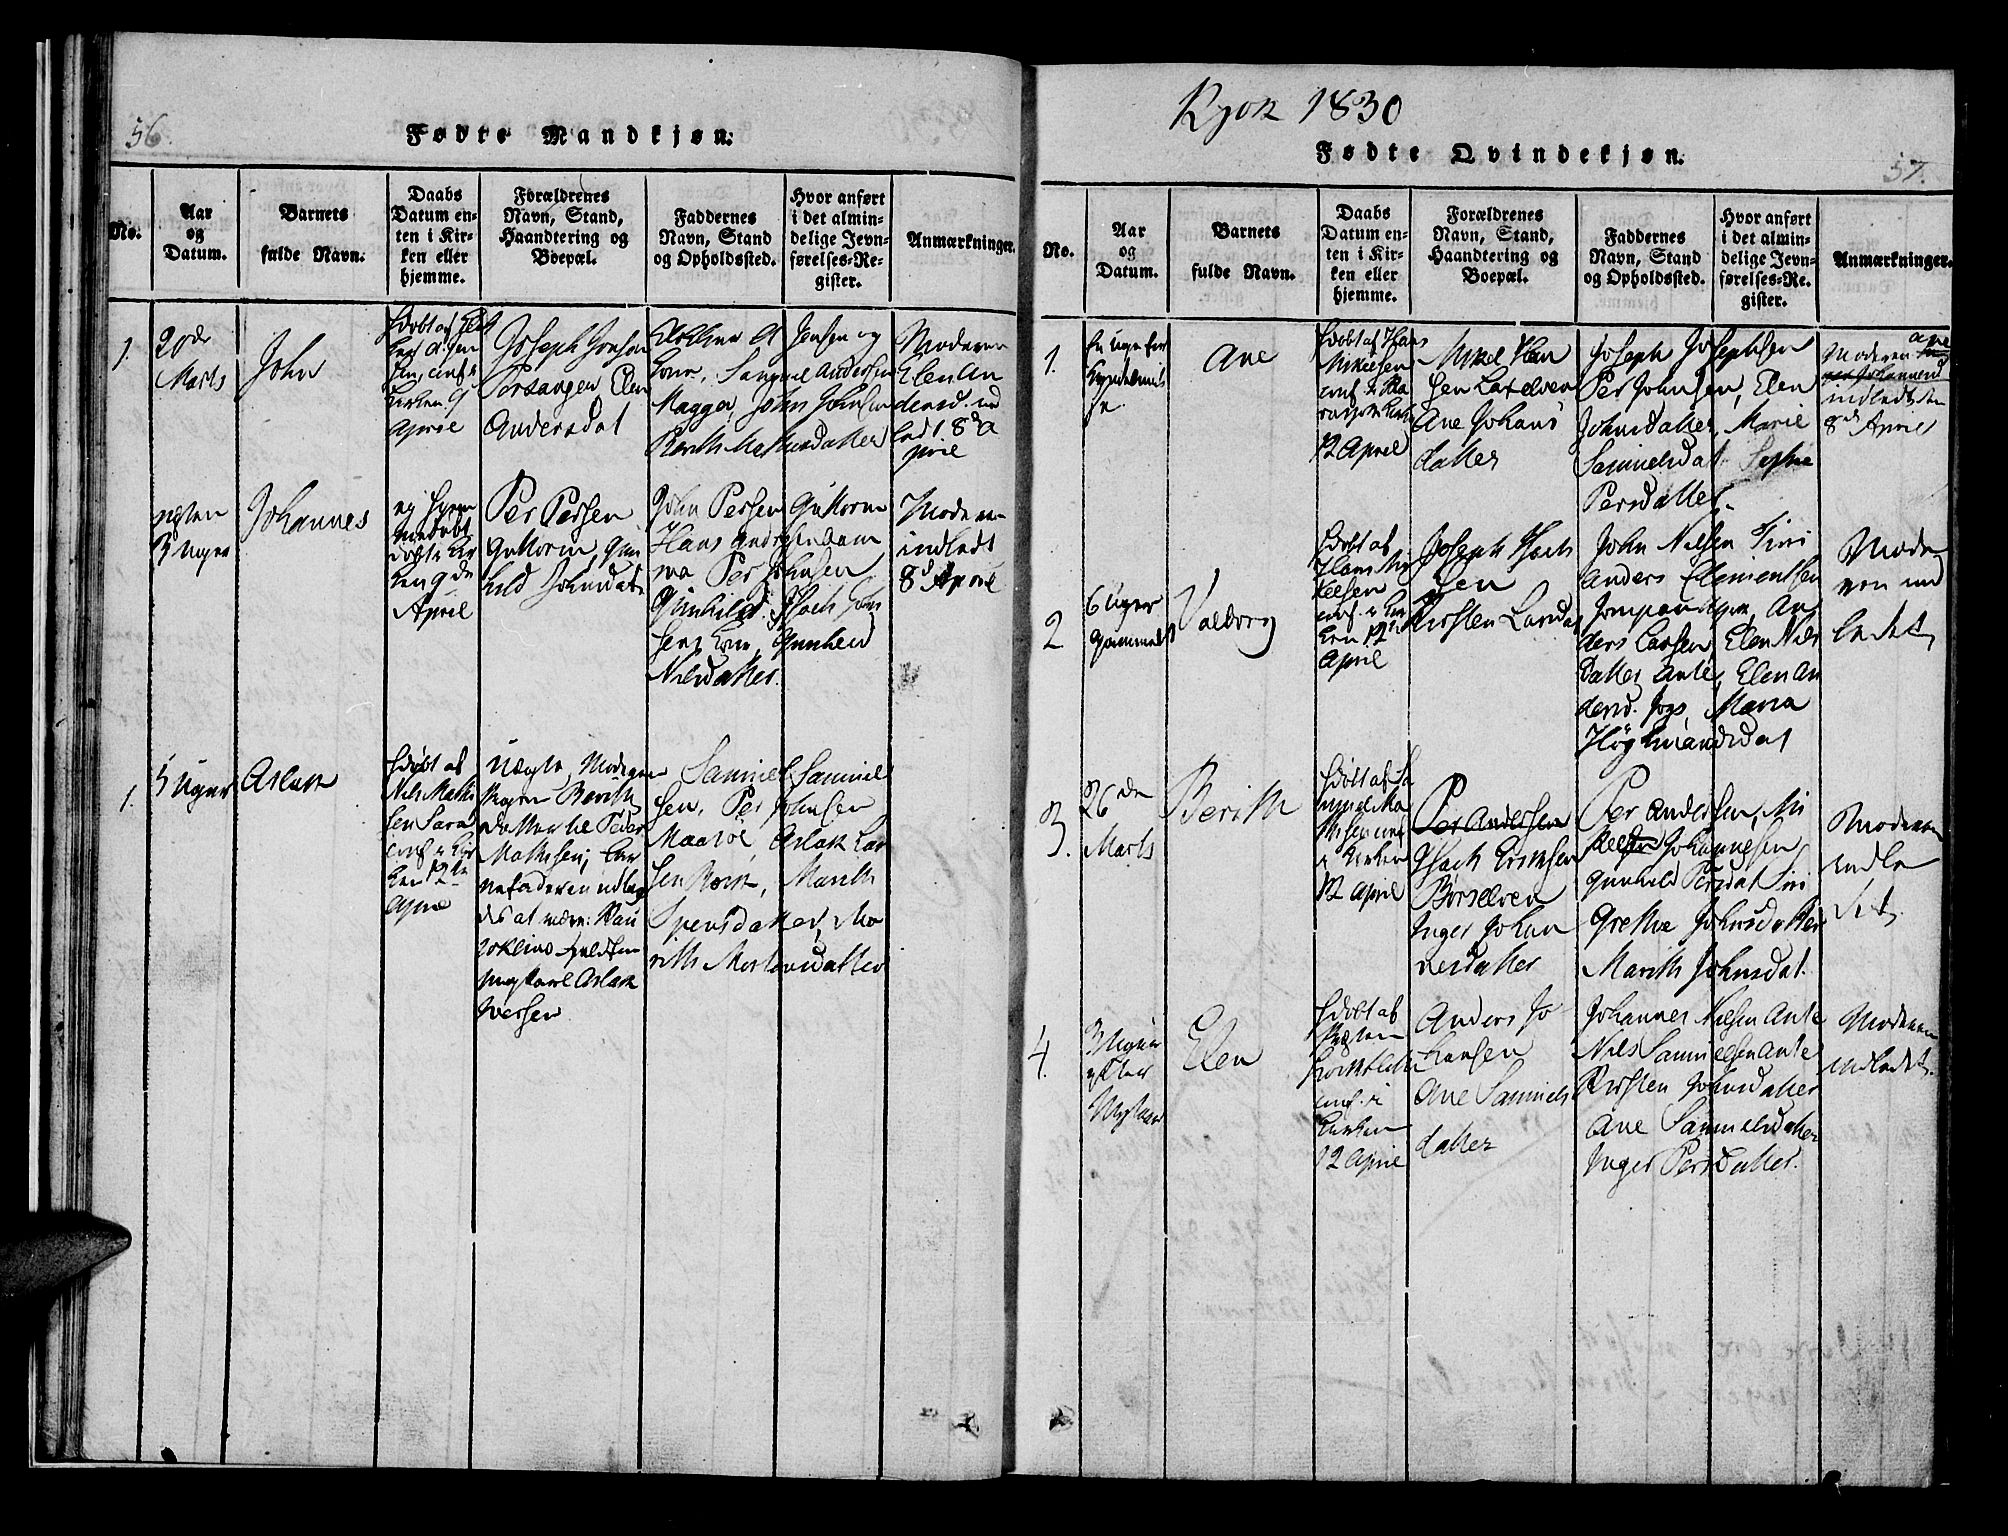 56.
Fødte Mandkjøn.
No.
Aar
og
Datum.
Barnets
fulde Navn.
Daabs
Datum en-
ten i Kir-
ken eller
hjemme.
Forældrenes
Navn, Stand,
Haandtering og
Boepæl.
Faddernes
Navn, Stand
og Opholdssted.
Hvor anført
i det almin-
delige Jevn-
førelses-Re-
gister.
Anmærkninger.
1.
20de
Marts
John
hdøbt af
Kirken 9
April
Joseph Jonsen
Porsanger Elen
Andersdat
Jensen og
Kone, Samuel Andersen
Magga, John Johnsen
Berith Mathisdatter
Moderen
Elen An
dersd. ind
ledt 8de A
pril
næsten
3 Uger
Johannes
ej hjem
medøbt
døbt i Kir
ken 9de
April
Per Persen
Guttorm, Gun
hild Johnsdat
John Persen Guttorm
Hans Andersen
Per Johnsen
Gunhild Isach John
sens Kone, Gunhild
Nilsdatter.
Moderen
indledt
8de April
1.
5 Uger
Aslak
hdøbt af
Nils Mathi
sen Sara
conf. i Kir
ken 12te
April
Uægte, Moderen
Pigen Berith
Mathisen;
nefaderen udlag
des at være:
Aslak
Iversen
Samuel Samuel
sen, Per Johnsen
Maasøe Aslak Lar
sen, Marith
datter, Ma
rith Mortensdatter
Kjok 1830
Fødte Qvindekjøn.
57.
No.
Aar
og
Datum.
Barnets
fulde Navn.
Daabs
Datum en-
ten i Kir-
ken eller
hjemme.
Forældrenes
Navn, Stand,
Haandtering og
Boepæl.
Faddernes
Navn, Stand
og Opholdssted.
Hvor anført
i det almin-
delige Jevn-
førelses-Re-
gister.
Anmærkninger.
1.
En Uge før
Kyndelmis
se
Ane
hdøbt af Hans
Mikelsen
conf. i
12 April
Mikel Han
sen Laxelven
Ane Johans
datter
Joseph Josephsen
Per Johnsen, Elen
Johnsdatter, Marie
Samuelsdat Sophie
Persdatter.
Moderen Ane
Johannesd
indledt den
8de April
2
6 Uger
gammel
Valborg
hdøbt af
Hans Mi
kelsen
conf. i Kir
ken 12te
April
Joseph Isach
sen
Kirsten Larsdat
John Nilsen
Anders Clementsen
An
ders Larsen, Elen Nils
datter Ante, Elen An
dersd. Maria
Mode
ren ind
ledet
3.
26de
Marts
Berith
hdøbt af Sa
muel Ma
thisen conf
i Kirken
12 April
Per Andersen
Isach Eriksen
Børselven
Inger Johan
nesdatter
Per Andersen, Mi
kelsen Johannesen
Gunhild Persdat Siri
Grethe Johnsdatter
Marith Johnsdat.
Moderen
indle
det.
4.
3 Uger
efter
Nytaar
Elen
hdøbt af
conf. i
Kirken
12 April
Anders Jo
hansen
Ane Samuels
datter
Johannes Nilsen Ante
Nils Samuelsen Ante
Kirsten Johnsdatter
Ane Samuelsdatter
Inger Persdatter.
Moderen
indledet.